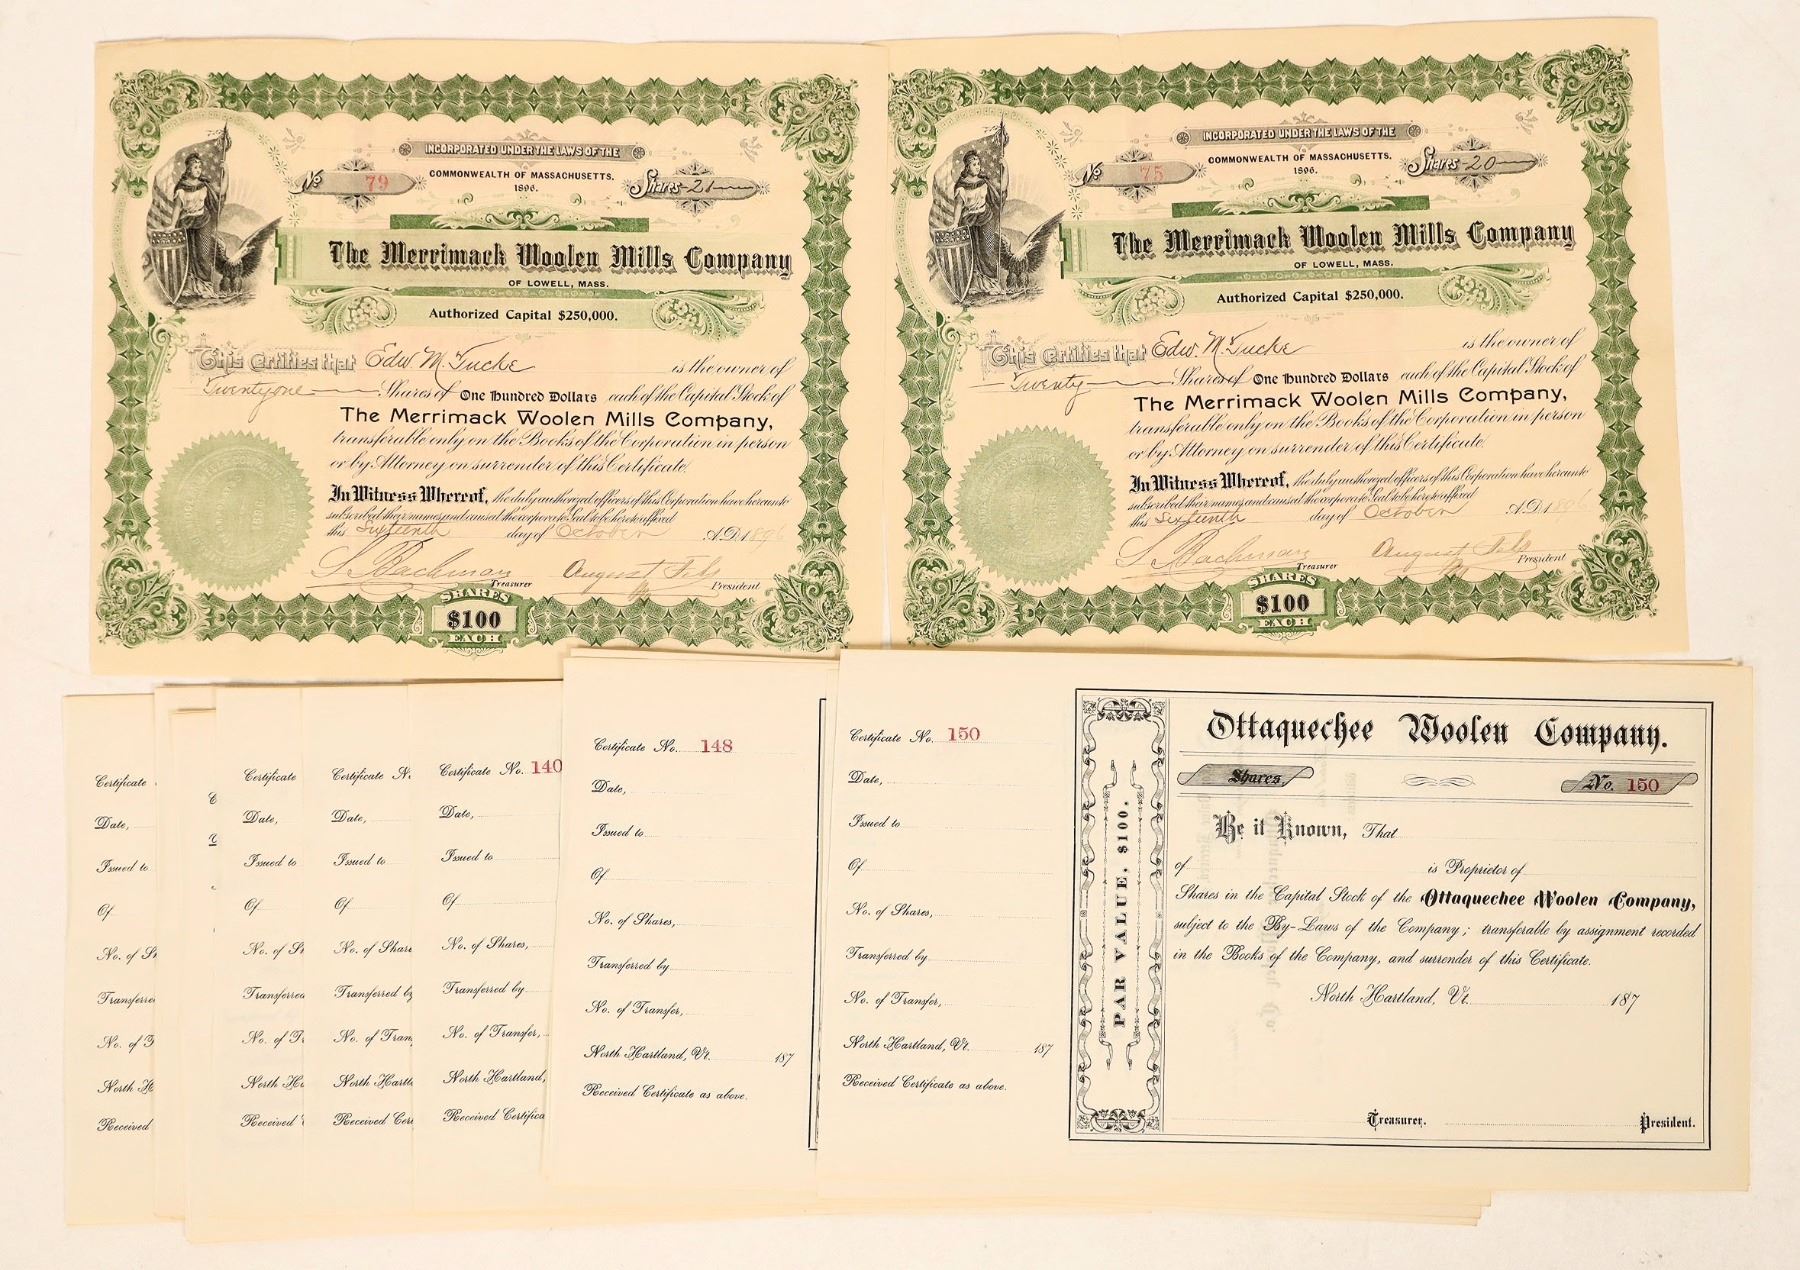 INCORPORATED UNDER THE LAWS OF THE
COMMONWEALTH OF MASSACHUSETTS.
1896.
No 79
Shares 21
The Merrimack Woolen Mills Company
OF LOWELL, MASS.
Authorized Capital $250,000.
This Certifies that Edw. M. Tucke is the owner of
Twentyone Shares of One Hundred Dollars each of the Capital Stock of
The Merrimack Woolen Mills Company,
transferable only on the Books of the Corporation in person
or by Attorney on surrender of this Certificate
In Witness Whereof, the duly authorized officers of this Corporation have hereunto
subscribed their names and caused the corporate Seal to be hereto affixed
this Sixteenth day of October A.D. 1896
S. Bachman Treasurer August Fels President
SHARES
$100
EACH
INCORPORATED UNDER THE LAWS OF THE
COMMONWEALTH OF MASSACHUSETTS.
1896.
No 75
Shares 20
The Merrimack Woolen Mills Company
OF LOWELL, MASS.
Authorized Capital $250,000.
This Certifies that Edw. M. Tucke is the owner of
Twenty Shares of One Hundred Dollars each of the Capital Stock of
The Merrimack Woolen Mills Company,
transferable only on the Books of the Corporation in person
or by Attorney on surrender of this Certificate
In Witness Whereof, the duly authorized officers of this Corporation have hereunto
subscribed their names and caused the corporate Seal to be hereto affixed
this Sixteenth day of October A.D. 1896
S. Bachman Treasurer August Fels President
SHARES
$100
EACH
Certificate
Date,
Issued to
Of
No. of Sh
Transferred
No. of T
North H
Received
Certificate
Date,
Issued to
Of
No. of Sh
Transferred
No. of Tr
North Ha
Received
Certificate N
Date,
Issued to
Of
No. of Share
Transferred by
No. of Tran
North Hartl
Received Cer
Certificate No. 140
Date,
Issued to
Of
No. of Shares,
Transferred by
No. of Transfer,
North Hartland,
Received Certifica
Certificate No. 148
Date,
Issued to
Of
No. of Shares,
Transferred by
No. of Transfer,
North Hartland, Vt. 187
Received Certificate as above.
Certificate No. 150
Date,
Issued to
Of
No. of Shares,
Transferred by
No. of Transfer,
North Hartland, Vt. 187
Received Certificate as above.
PAR VALUE, $100.
Ottaquechee Woolen Company.
Shares, No. 150
Be it Known, That
of is Proprietor of
Shares in the Capital Stock of the Ottaquechee Woolen Company,
subject to the By-Laws of the Company; transferable by assignment recorded
in the Books of the Company, and surrender of this Certificate.
North Hartland, Vt. 187
Treasurer. President.